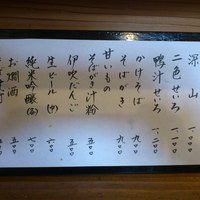 深山 一、〇〇〇
二色せいろ
鴨汁せいろ 一、二〇〇
かけそば
そばがき 九〇〇
甘いもの
そばがき汁粉 五〇〇
伊吹だんご 五〇〇
生ビール(中) 五〇〇
純米吟醸 七〇〇
お燗酒